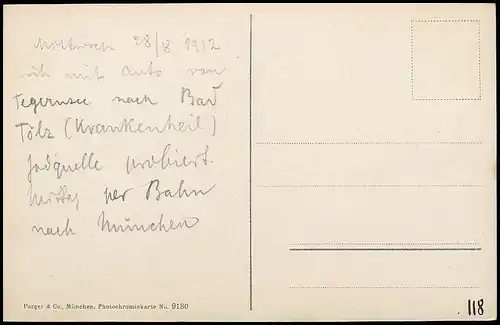 Mittwoch 28/8 1912
mit Auto von
Tegernsee nach Bad
Tölz (Krankenheil)
Jodquelle probiert.
Mittag per Bahn
nach München
Purger & Co., München, Photochromiekarte No. 9180
118